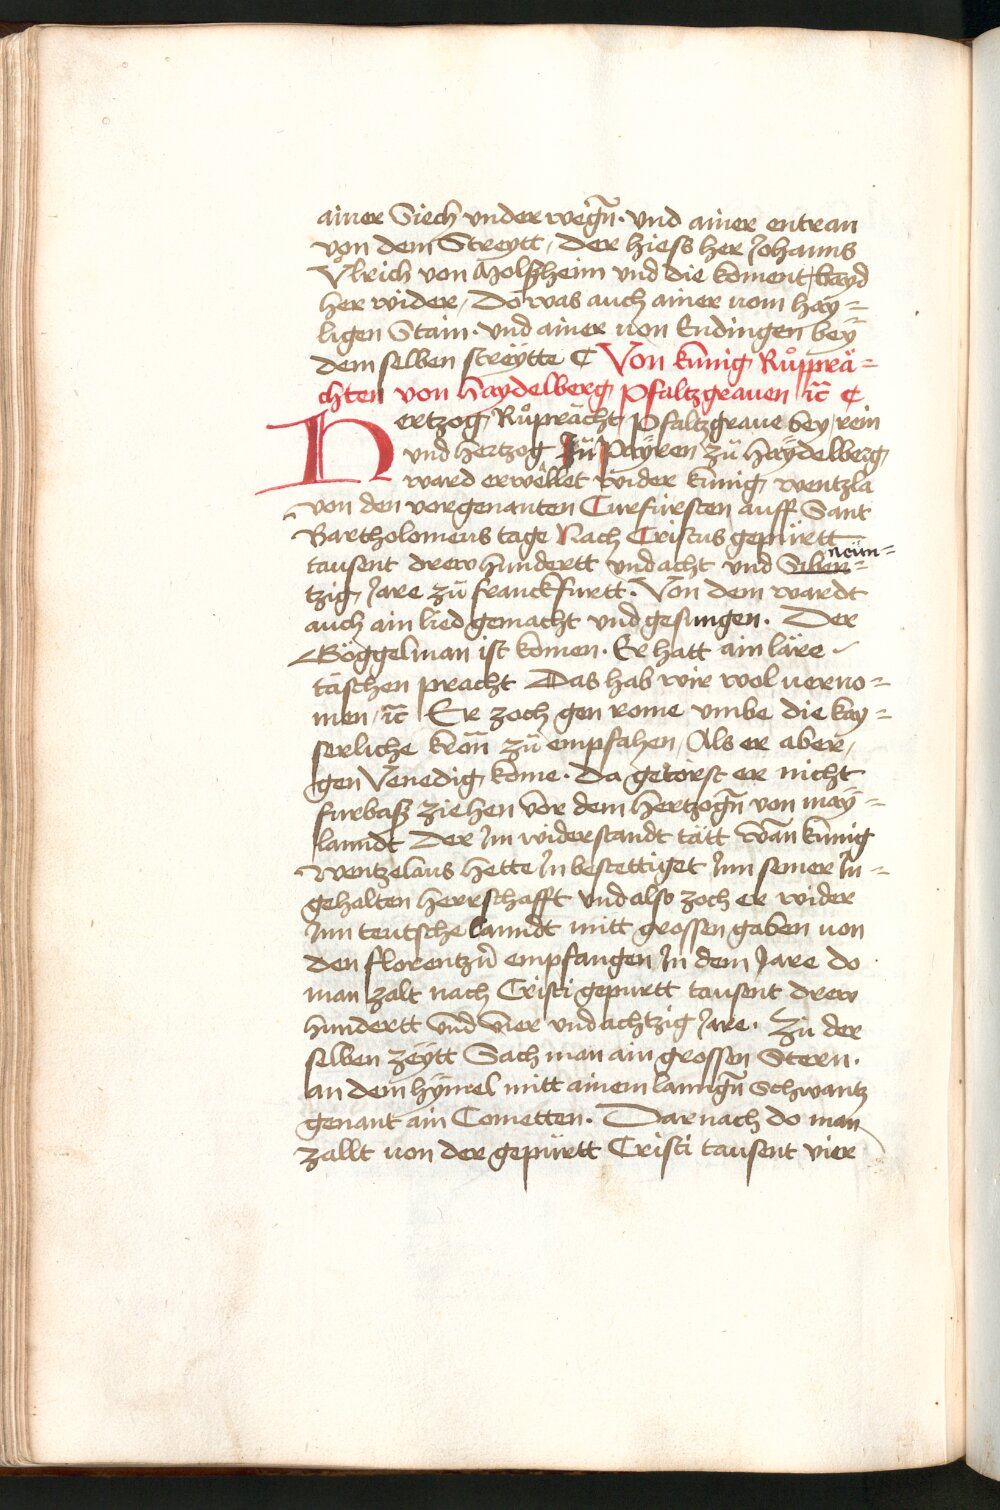 ainer Siech vnder wegn̄. vnd ainer entran
von dem Streytt, Der hiess her Johanns
Vlrich von Molssheim vnd die koment bayd
her wider, Do was auch ainer vom hay=
ligen Stain. vnd ainer von Endingen bey
dem selben streytte ¶ Von kunig Růpprä=
chten von Haydelberg Pfaltzgrauen ꝛc̄ ¶
Hertzog Růprächt Pfaltzgraue bey rein
vnd Hertzog Jn Payren zu̎ Haydelberg
ward erwellet wider kunig wentzla
von den vorgenanten Curfürsten auff Sant
Bartholomeus tage Nach Cristus gepürtt
neün=
tausent drewhundertt vnd acht vnd Siben=
tzig Jare zu̎ franckfurtt. Von dem wardt
auch ain lied gemacht vnd gesungen. Der
Göggelman ist komen. Er hatt ain läre
täschen pracht Das hab wir wol verno=
men, ꝛc̄ Er zoch gen rome vmbe die kay=
serliche kron̄ zu̎ empfahen, Als er aber,
gen Venedig kome. Da getorst er nicht
furbass ziehen vor dem Hertzogn̄ von may=
lanndt Der Jm widerstandt tätt wan kunig
wentzelaus hette Jn bestettiget Jnn seiner Jn=
gehalten Herrschafft vnd also zoch er wider
Jnn teutsche lanndt mitt grossen gaben von
den florentzn̄ empfangen Jn dem Jare do
man zalt nach Cristi gepurtt tausent drew
hundertt vnd vier vnd achtzig Jare. Zu̎ der
selben zeytt Sach man ain grossen Stern.
an dem hymel mitt ainem lanngn̄ Schwantz
genant ain Cometten. Dar nach do man
zallt von der gepürtt Cristi tausent vier